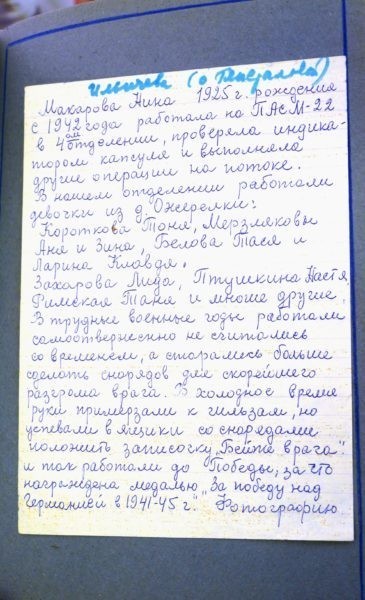 Ильичева (о Тансталова)
Макарова Нина 1925 г. рождения
с 1942 года работала на ПАСМ-22
в 4ом отделении, проверяла индика-
тором капсуля и выполняла
другие операции на потоке.
В нашем отделении работали
девочки из д. Ожерелки:
Короткова Тоня, Мерзляковы
Аня и Зина, Белова Тася и
Ларина Клавдя.
Захарова Лида, Птушкина Настя,
Римская Таня и многие другие.
В трудные военные годы работали
самоотверженно не считались
со временем, а старались больше
сделать снорядов для скорейшего
разгрома врага. В холодное время
руки примерзали к гильзам, но
успевали в ящики со снорядами
положить записочку „Бейте врага".
и так работали до Победы, за что
награждена медалью „За победу над
Германией в 1941-45 г." Фотографию